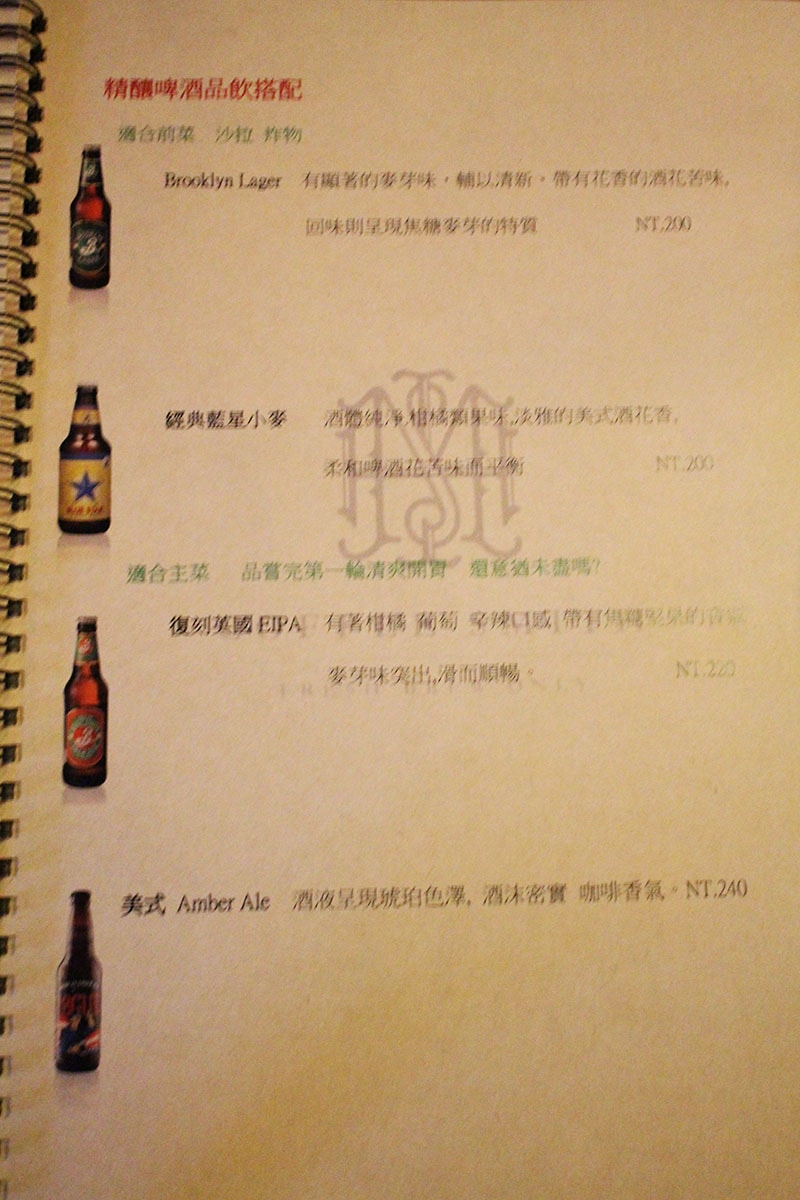 精釀啤酒品飲搭配
適合前菜 沙拉 炸物
Brooklyn Lager 有顯著的麥芽味，輔以清新、帶有花香的酒花苦味,
回味則呈現焦糖麥芽的特質 NT.200
經典藍星小麥 酒體純淨,柑橘類果味,淡雅的美式酒花香,
柔和啤酒花苦味而平衡 NT.200
適合主菜 品嘗完第一輪清爽開胃 還意猶未盡嗎?
復刻英國 EIPA 有著柑橘 葡萄 辛辣口感 帶有焦糖堅果的香氣
麥芽味突出,滑而順暢。 NT.220
美式 Amber Ale 酒液呈現琥珀色澤, 酒沫密實 咖啡香氣。NT.240